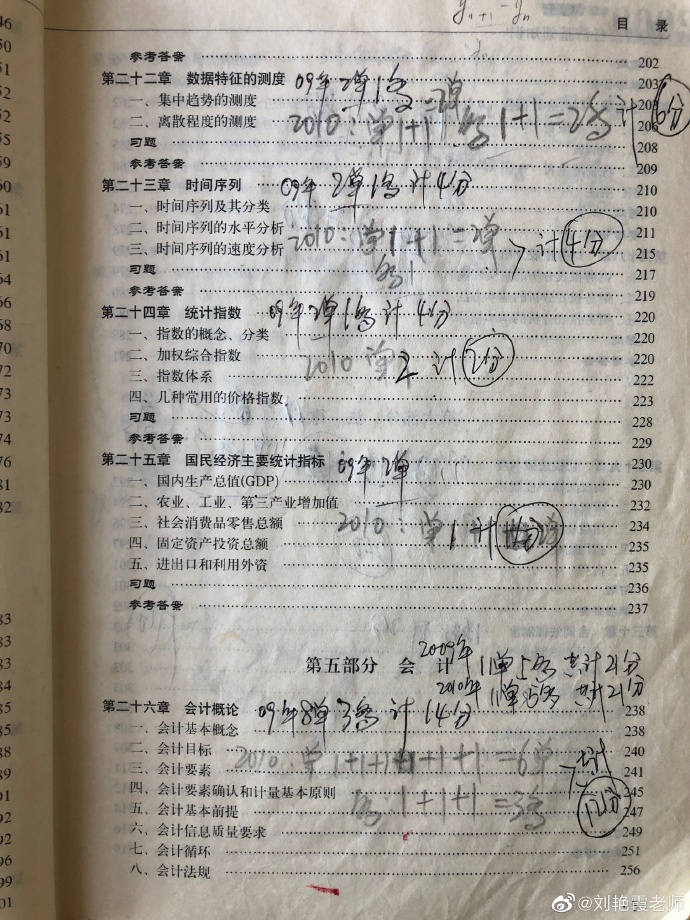 yₙ₊₁ − yₙ
目 录
参考答案 202
第二十二章 数据特征的测度 09年2单1多 203
一、集中趋势的测度 =2单 203
二、离散程度的测度 2010:单1+1 多1+1=2多 计6分 206
习题 208
参考答案 209
第二十三章 时间序列 09年2单1多计4分 210
一、时间序列及其分类 210
二、时间序列的水平分析 2010:单1+1=2单 211
三、时间序列的速度分析 多1 计4分 215
习题 217
参考答案 219
第二十四章 统计指数 09年2单1多计4分 220
一、指数的概念、分类 220
二、加权综合指数 2010单2计2分 220
三、指数体系 222
四、几种常用的价格指数 223
习题 228
参考答案 229
第二十五章 国民经济主要统计指标 09年2单 230
一、国内生产总值(GDP) 230
二、农业、工业、第三产业增加值 232
三、社会消费品零售总额 2010:单1计 234
四、固定资产投资总额 235
五、进出口和利用外资 235
习题 236
参考答案 237
第五部分 会 计 2009年11单5多共计21分
2010年11单5多共计21分
第二十六章 会计概论 09年8单3多计14分 238
一、会计基本概念 238
二、会计目标 240
三、会计要素 2010:单1+1+1+1+1+1=6单 241
四、会计要素确认和计量基本原则 245
五、会计基本前提 多1+1+1=3多 计12分 247
六、会计信息质量要求 249
七、会计循环 251
八、会计法规 256
@刘艳霞老师